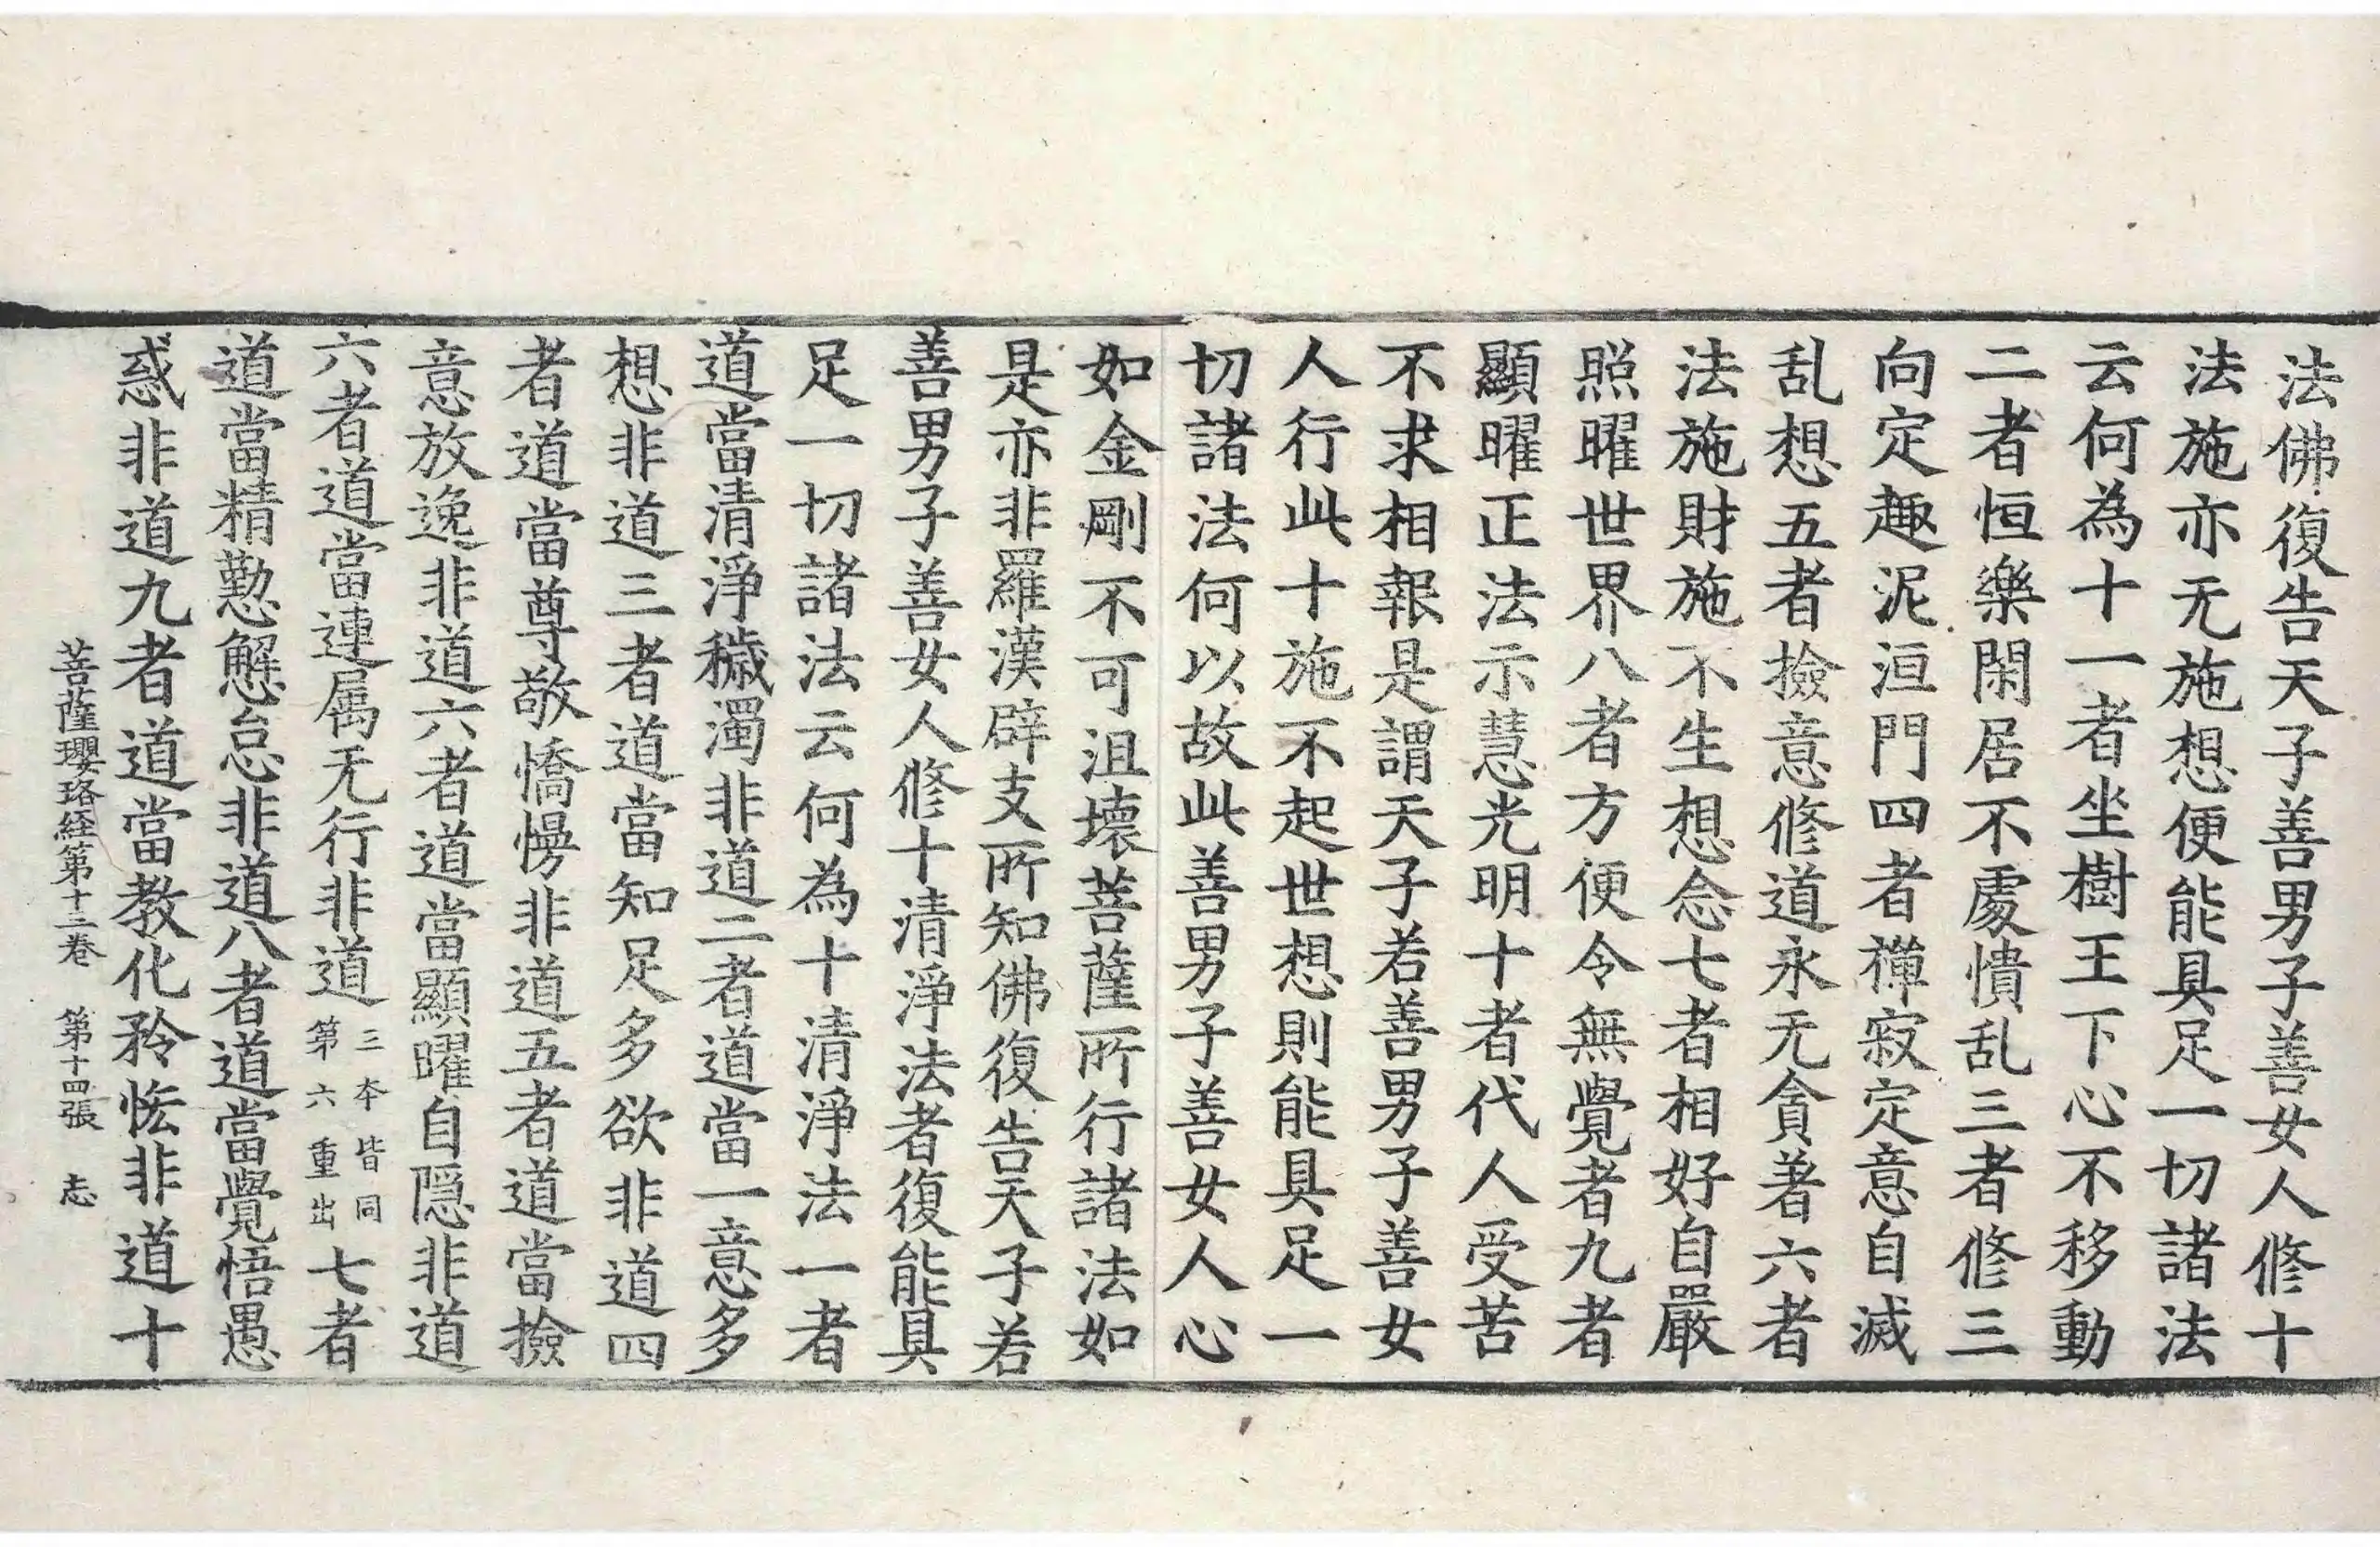 法佛復告天子善男子善女人修十
法施亦无施想便能具足一切諸法
云何為十一者坐樹王下心不移動
二者恒樂閑居不處憒乱三者修三
向定趣泥洹門四者禪寂定意自滅
乱想五者撿意修道永无貪著六者
法施財施不生想念七者相好自嚴
照曜世界八者方便令無覺者九者
顯曜正法示慧光明十者代人受苦
不求相報是謂天子若善男子善女
人行此十施不起世想則能具足一
切諸法何以故此善男子善女人心
如金剛不可沮壞菩薩所行諸法如
是亦非羅漢辟支所知佛復告天子若
善男子善女人修十清淨法者復能具
足一切諸法云何為十清淨法一者
道當清淨穢濁非道二者道當一意多
想非道三者道當知足多欲非道四
者道當尊敬憍慢非道五者道當撿
意放逸非道六者道當顯曜自隱非道
六者道當連属无行非道三夲皆同第六重出七者
道當精懃懈怠非道八者道當覺悟愚
惑非道九者道當教化矜恡非道十
菩薩瓔珞経第十二卷 第十四張 志